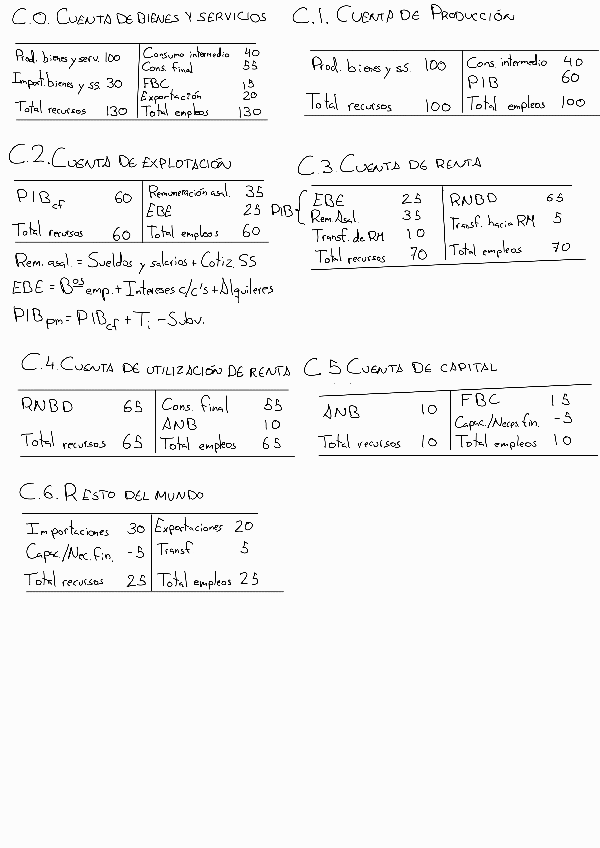 C.0. CUENTA DE BIENES Y SERVICIOS
Prod. bienes y serv. 100 Consumo intermedio 40
Cons. final 55
Import. bienes y ss. 30 FBC 15
Exportación 20
Total recursos 130 Total empleos 130
C.1. CUENTA DE PRODUCCIÓN
Prod. bienes y ss. 100 Cons. intermedio 40
PIB 60
Total recursos 100 Total empleos 100
C.2. CUENTA DE EXPLOTACIÓN
PIBcf 60 Remuneración asal. 35
EBE 25
Total recursos 60 Total empleos 60
Rem. asal. = Sueldos y salarios + Cotiz. SS
EBE = Bos emp. + Intereses c/c's + Alquileres
PIBpm = PIBcf + Ti - Subv.
C.3 CUENTA DE RENTA
PIB { EBE 25 RNBD 65
Rem. Asal. 35 Transf. hacia RM 5
Transf. de RM 10
Total recursos 70 Total empleos 70
C.4. CUENTA DE UTILIZACIÓN DE RENTA
RNBD 65 Cons. final 55
ANB 10
Total recursos 65 Total empleos 65
C.5 CUENTA DE CAPITAL
ANB 10 FBC 15
Capac./Neces. fin. -5
Total recursos 10 Total empleos 10
C.6. RESTO DEL MUNDO
Importaciones 30 Exportaciones 20
Capac./Nec. fin. -5 Transf 5
Total recursos 25 Total empleos 25